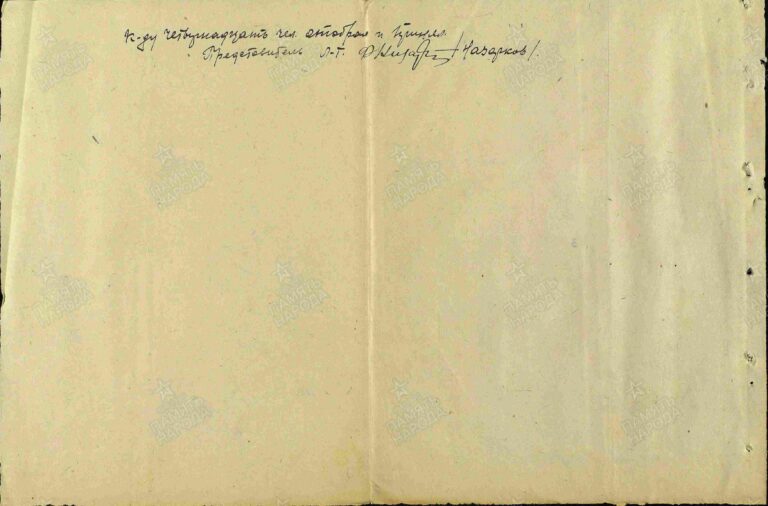 К-ду четырнадцать чел. отобрал и принял.
Представитель Л-т. /Назарков/.
ПАМЯТЬ НАРОДА
ПАМЯТЬ НАРОДА
ПАМЯТЬ НАРОДА
ПАМЯТЬ НАРОДА
ПАМЯТЬ НАРОДА
ПАМЯТЬ НАРОДА
ПАМЯТЬ НАРОДА
ПАМЯТЬ НАРОДА
ПАМЯТЬ НАРОДА